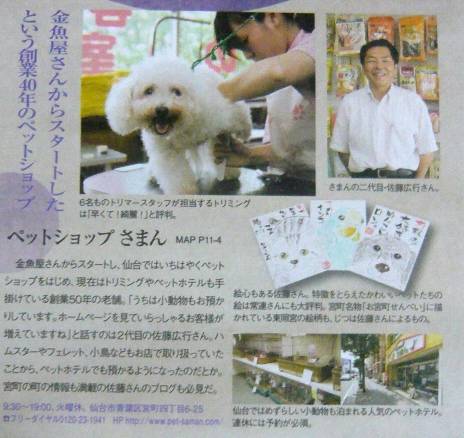 金魚屋さんからスタートした
という創業40年のペットショップ
6名ものトリマースタッフが担当するトリミング
は「早くて!綺麗!」と評判。
さまんの二代目・佐藤広行さん。
ペットショップ さまん MAP P11-4
金魚屋さんからスタートし、仙台ではいちはやくペット
ショップをはじめ、現在はトリミングやペットホテルも手
掛けている創業50年の老舗。「うちは小動物もお預か
りしています。ホームページを見ていらっしゃるお客様が
増えていますね」と話すのは2代目の佐藤広行さん。ハ
ムスターやフェレット、小鳥などもお店で取り扱っていた
ことから、ペットホテルでも預かるようになったのだとか。
宮町の町の情報も満載の佐藤さんのブログも必見だ。
9:30〜19:00、火曜休。仙台市青葉区宮町四丁目6-25
フリーダイヤル0120-23-1941 HP http://www.pet-saman.com/
絵心もある佐藤さん。特徴をとらえたかわいいペットたちの
絵は常連さんにも大評判。宮町名物「お宮町せんべい」に描
かれている東照宮の絵柄も、じつは佐藤さんによるもの。
仙台ではめずらしい小動物も泊まれる人気のペットホテル。
連休には予約が必須。